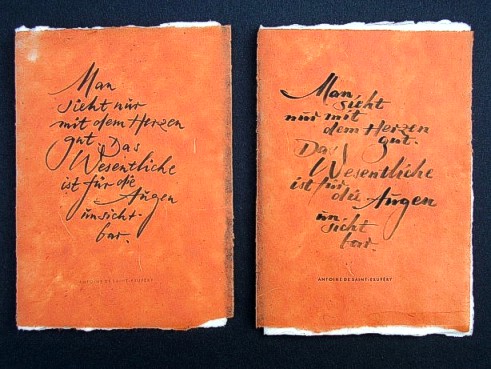 Man
sieht nur
mit dem Herzen
gut. Das
Wesentliche
ist für die
Augen
unsicht-
bar.
ANTOINE DE SAINT-EXUPÉRY
Man
sicht
nur mit
dem Herzen
gut.
Das
Wesentliche
ist für
die Augen
un
sicht
bar.
ANTOINE DE SAINT-EXUPÉRY